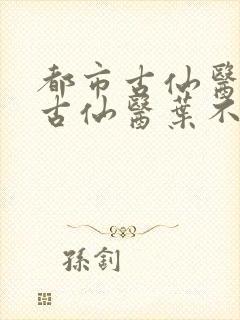 都市古仙醫
古仙醫葉不
孫釗